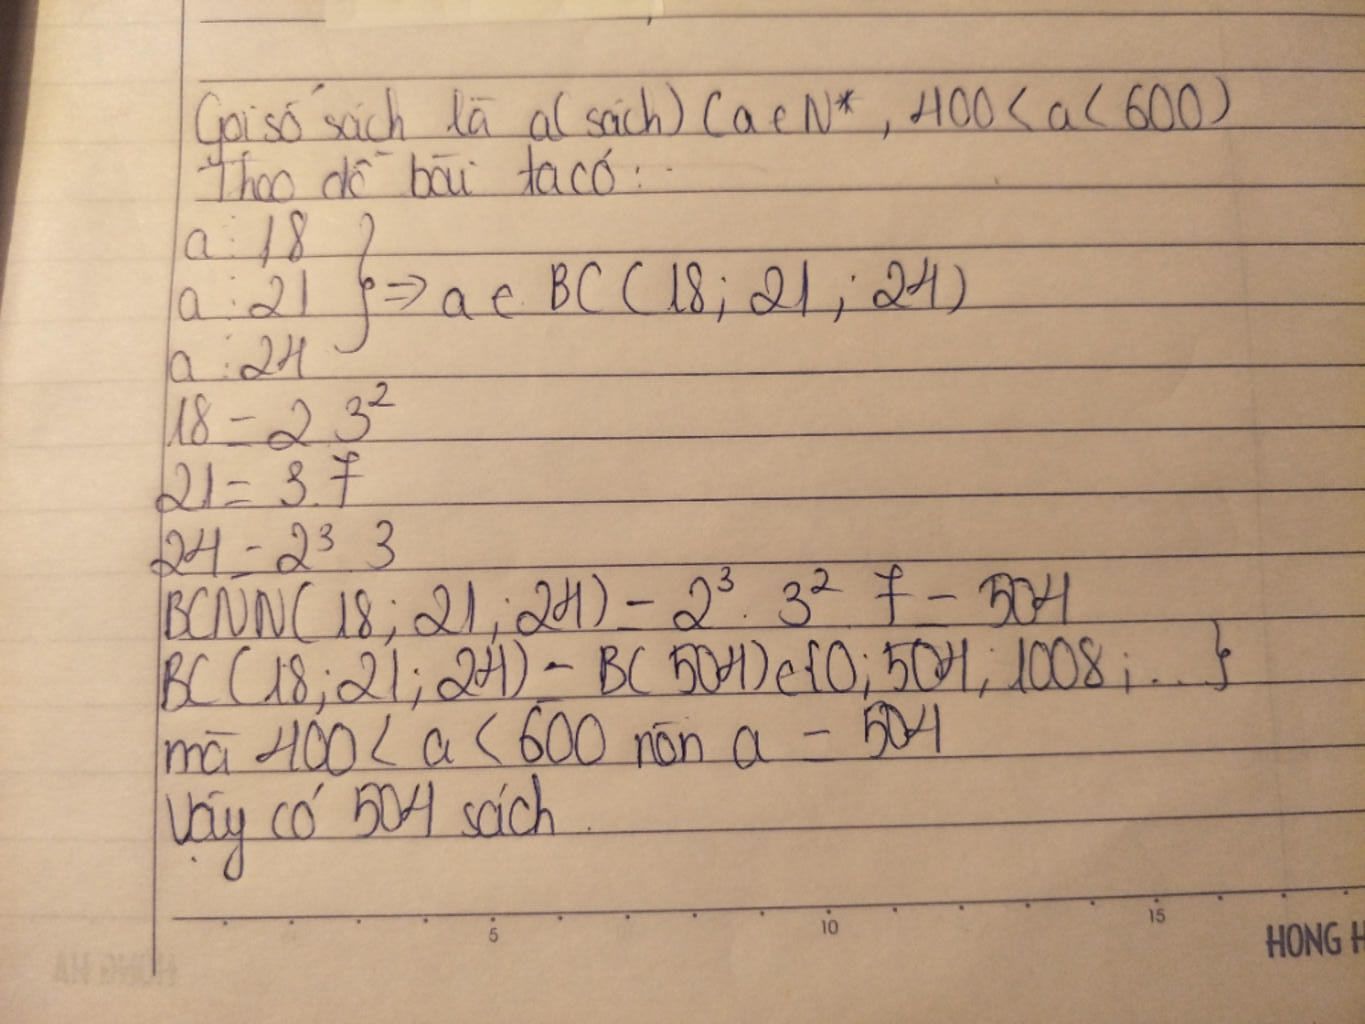 Gọi số sách là a( sách) ( a ∈ N* , 400 < a < 600 )
Theo đề bài ta có :
a ⋮ 18
a ⋮ 21 } ⇒ a ∈ BC ( 18 ; 21 ; 24 )
a ⋮ 24
18 = 2 3²
21 = 3. 7
24 = 2³ 3
BCNN( 18 ; 21 ; 24 ) = 2³ . 3² 7 = 504
BC ( 18 ; 21 ; 24 ) = B( 504 ) ∈ {0 ; 504 ; 1008 ; ... }
mà 400 < a < 600 nên a = 504
Vậy có 504 sách .
5 10 15
HONG H